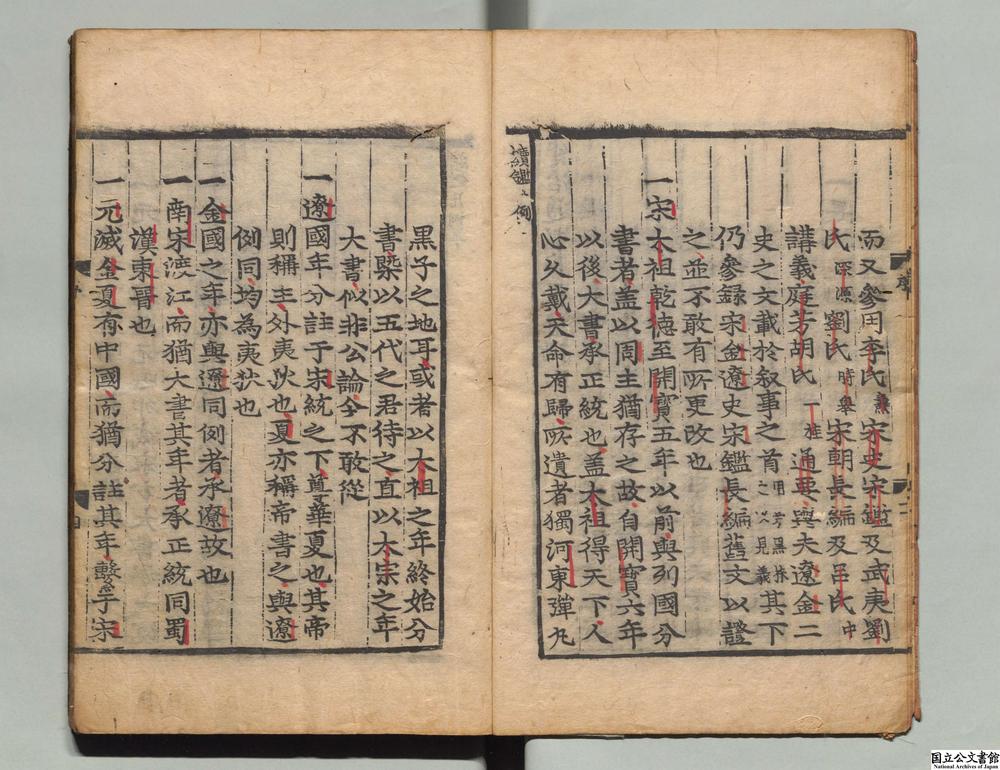 而又參用李氏燾宋史宋鑑及武夷劉
氏深源劉氏時舉宋朝長編及呂氏中
講義庭芳胡氏一桂通要與夫遼金二
史之文載於叙事之首用芳黑抹其下之以見義
仍參録宋金遼史宋鑑長編舊文以證
之並不敢有所更改也
一宋太祖乾德至開寶五年以前與列國分
書者盖以周主猶存之故自開寶六年
以後大書承正統也盖太祖得天下人
心久戴天命有歸所遺者獨河東彈丸
續鑑凡例
黑子之地耳或者以太祖之年終始分
書槩以五代之君待之直以太宗之年
大書似非公論今不敢從
一遼國年分註于宋統之下尊華夏也其帝
則稱主外夷狄也夏亦稱帝書之與遼
例同均為夷狄也
一金國之年亦與遼同例者承遼故也
一南宋渡江而猶大書其年者承正統同蜀
漢東晋也
一元滅金夏有中國而猶分註其年繫于宋
国立公文書館
National Archives of Japan